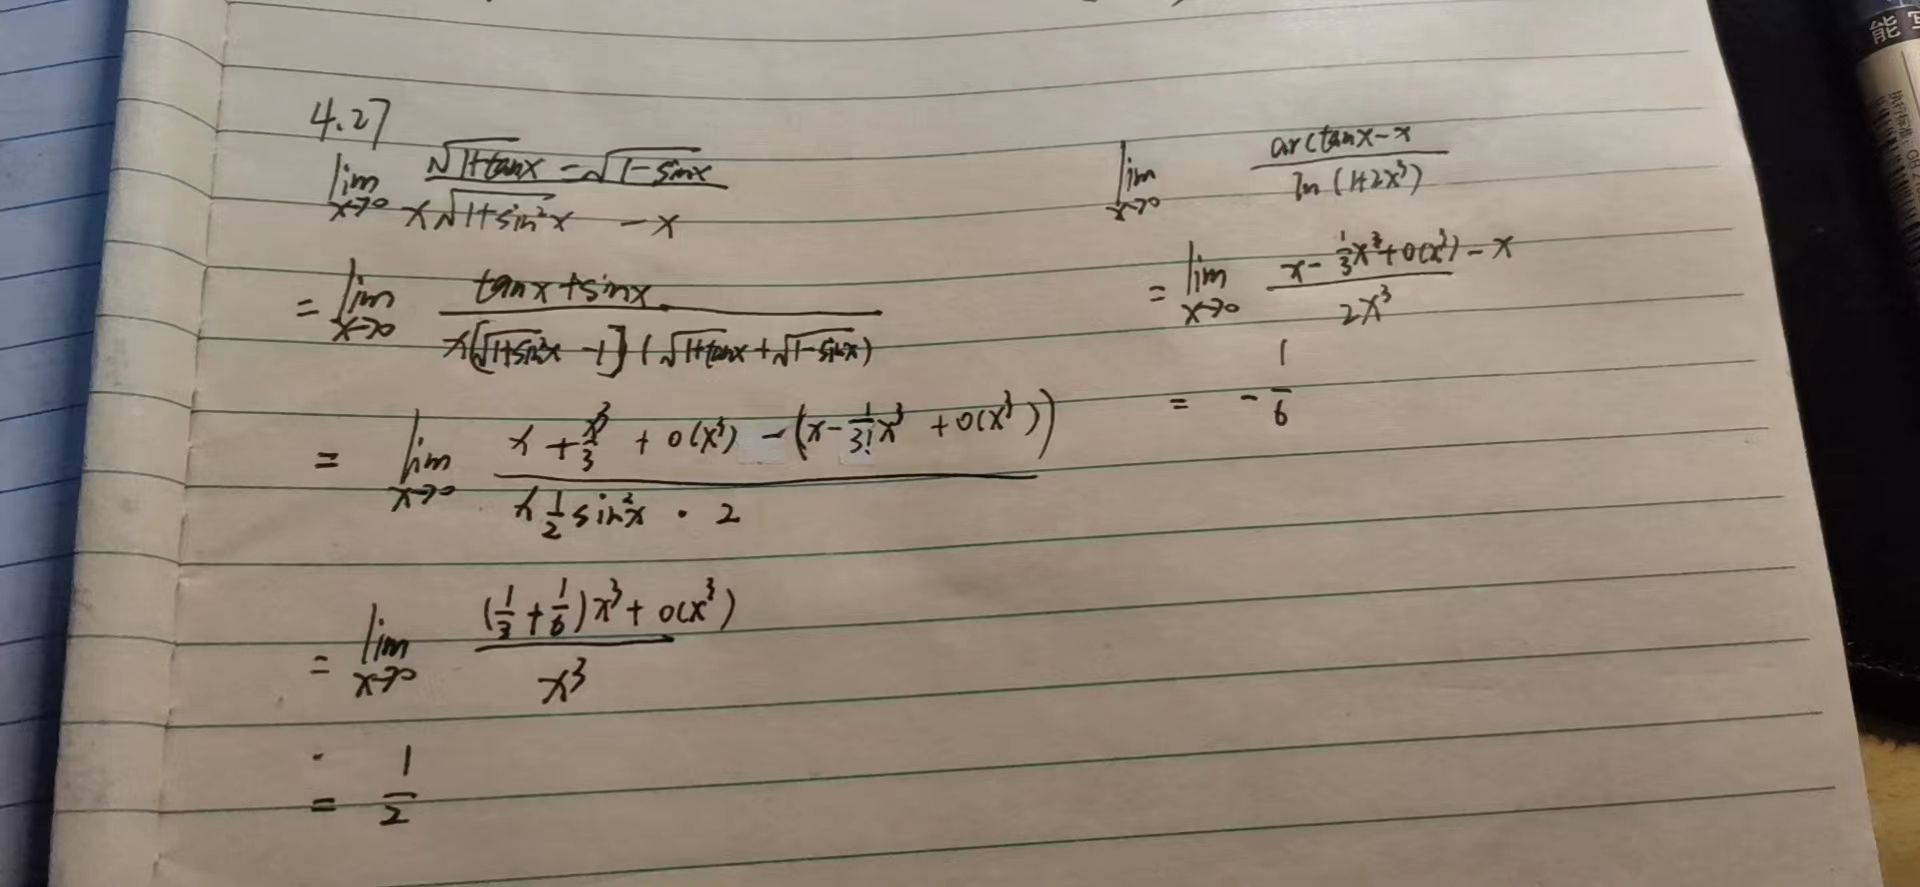 4.27
lim x→0 (√(1+tanx) - √(1-sinx)) / (x√(1+sin²x) - x)
= lim x→0 (tanx + sinx) / (x[√(1+sin²x) - 1](√(1+tanx) + √(1-sinx)))
= lim x→0 (x + x³/3 + o(x³) - (x - 1/3! x³ + o(x³))) / (x 1/2 sin²x · 2)
= lim x→0 ((1/3 + 1/6)x³ + o(x³)) / x³
= 1/2
lim x→0 (arctanx - x) / ln(1+2x³)
= lim x→0 (x - 1/3 x³ + o(x³) - x) / 2x³
= - 1/6
能